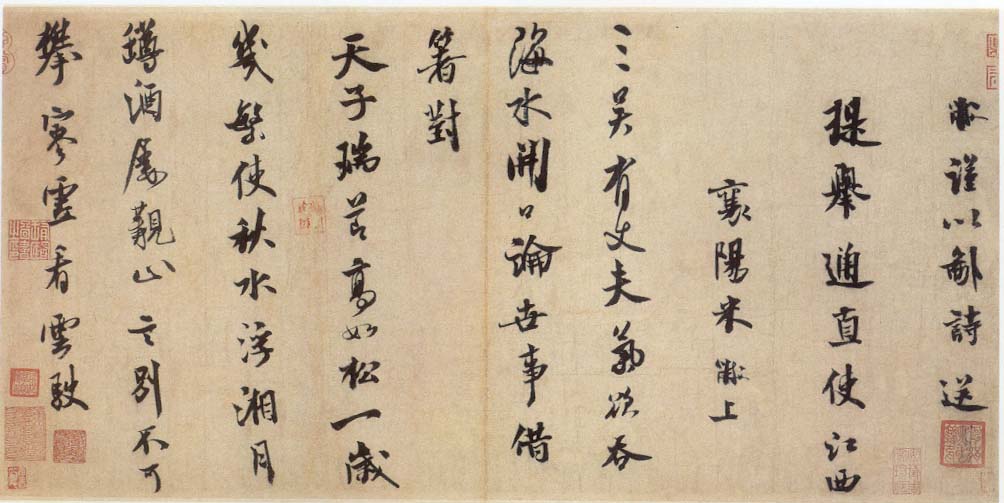 黻謹以鄙詩送
提舉通直使江西
襄陽米黻上
三吳有丈夫氣欲吞
海水開口論世事借
箸對
天子瑞節高如松一歲
幾繁使秋水浮湘月
罇酒屢覯止言別不可
攀寥虛看雲駛